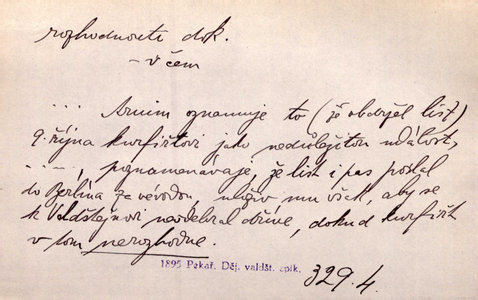 rozhodnouti dok.
– v čem
... Arnim oznamuje to (že obdržel list)
9. října kurfiřtovi jako nedůležitou událost,
... –, poznamenávaje, že list i pas poslal
do Berlína za vévodou, uloživ mu však, aby se
k Valdštejnovi neodebral dříve, dokud kurfiřt
v tom nerozhodne.
1895 Pekař. Děj. valdšt. spik.
329.4.